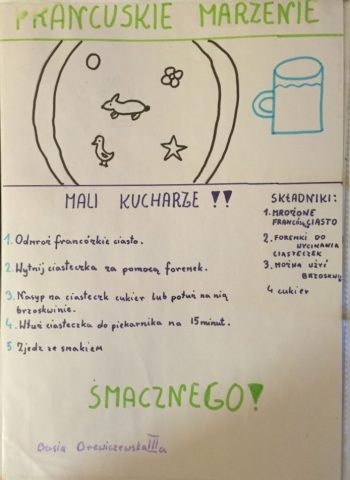 FRANCUSKIE MARZENIE
MALI KUCHARZE !!
1. Odmroź francózkie ciasto.
2. Wytnij ciasteczka za pomocą forenek.
3. Nasyp na ciasteczk cukier lub połuż na nią
brzoskwinie.
4. Włuż ciasteczka do piekarnika na 15 minut.
5 Zjedz ze smakiem
SKŁADNIKI:
1. MROŻONE
CIASTO
2. FORENKI DO
WYCINANIA
CIASTECZEK
3. MOŻNA UŻYĆ
4 cukier
ŚMACZNEGO!
Basia IIIa